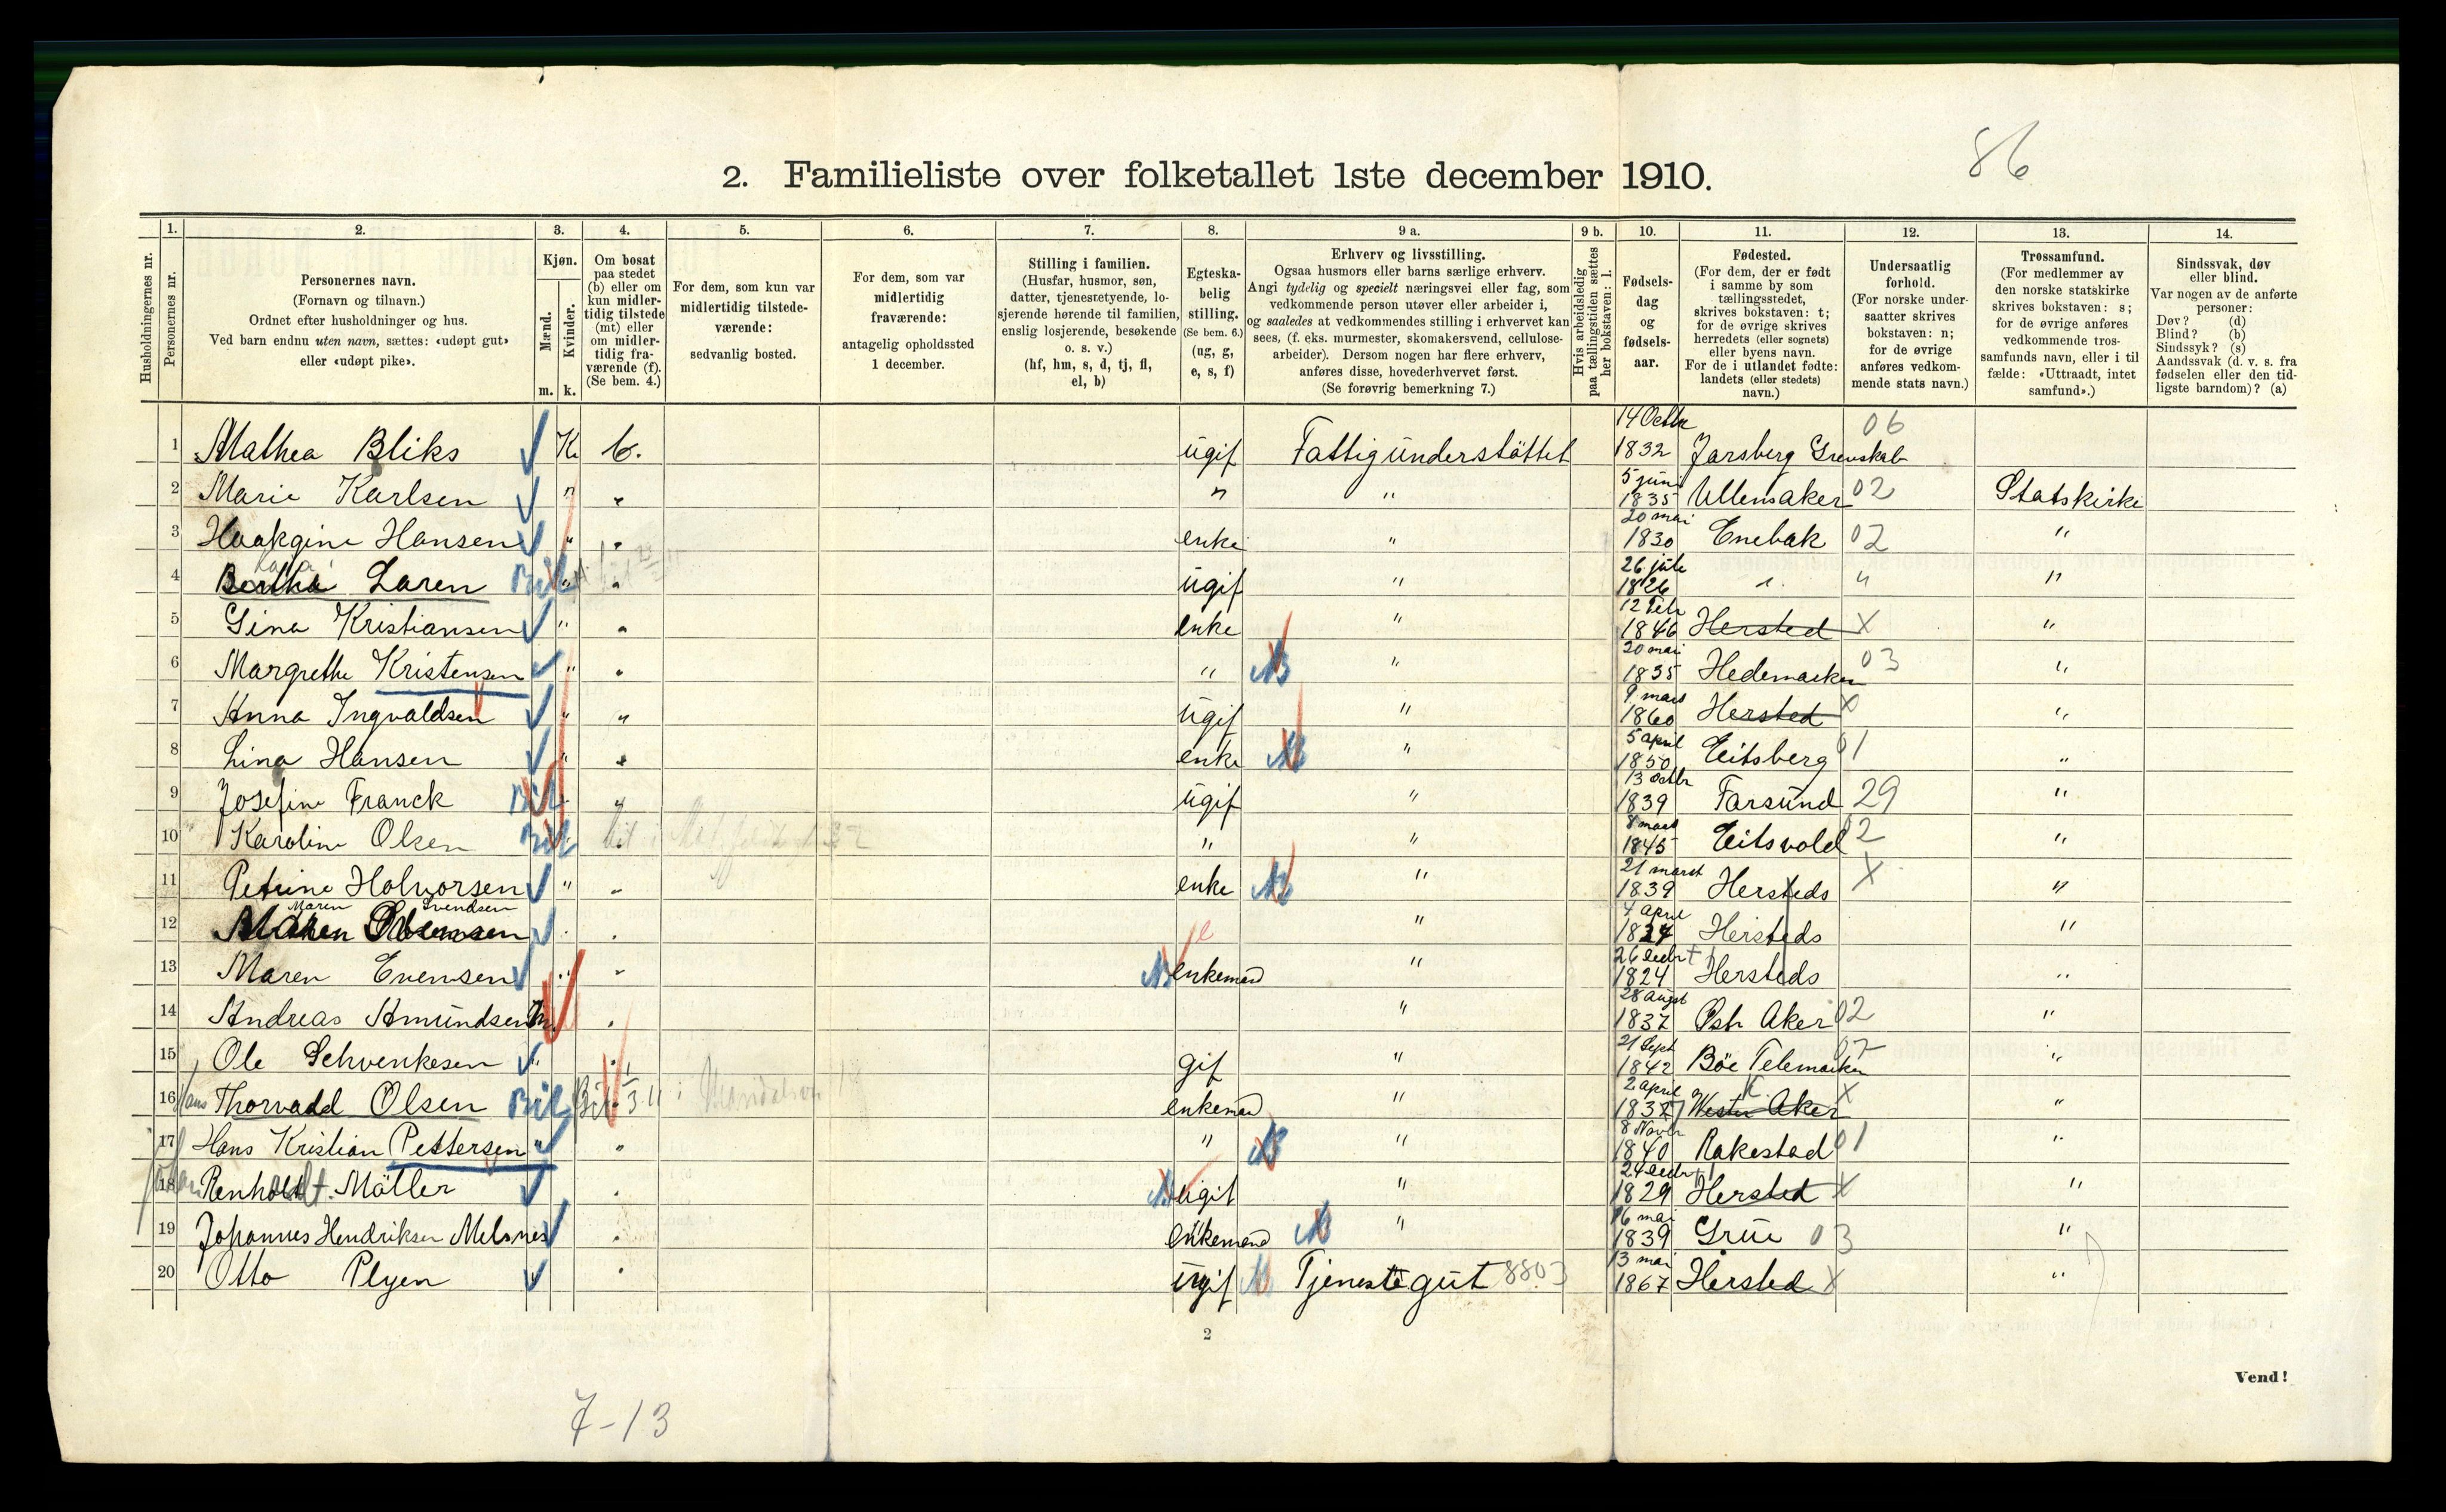 86
2. Familieliste over folketallet 1ste december 1910.
Husholdningernes nr.
1. Personernes nr.
2. Personernes navn. (Fornavn og tilnavn.) Ordnet efter husholdninger og hus. Ved barn endnu uten navn, sættes: «udøpt gut» eller «udøpt pike».
3. Kjøn. Mænd. m. Kvinder. k.
4. Om bosat paa stedet (b) eller om kun midlertidig tilstede (mt) eller om midlertidig fraværende (f). (Se bem. 4.)
5. For dem, som kun var midlertidig tilstedeværende: sedvanlig bosted.
6. For dem, som var midlertidig fraværende: antagelig opholdssted 1 december.
7. Stilling i familien. (Husfar, husmor, søn, datter, tjenestetyende, losjerende hørende til familien, enslig losjerende, besøkende o. s. v.) (hf, hm, s, d, tj, fl, el, b)
8. Egteskabelig stilling. (Se bem. 6.) (ug, g, e, s, f)
9 a. Erhverv og livsstilling. Ogsaa husmors eller barns særlige erhverv. Angi tydelig og specielt næringsvei eller fag, som vedkommende person utøver eller arbeider i, og saaledes at vedkommendes stilling i erhvervet kan sees, (f. eks. murmester, skomakersvend, cellulosearbeider). Dersom nogen har flere erhverv, anføres disse, hovederhvervet først. (Se forøvrig bemerkning 7.)
9 b. Hvis arbeidsledig paa tællingstiden sættes her bokstaven: l.
10. Fødselsdag og fødselsaar.
11. Fødested. (For dem, der er født i samme by som tællingsstedet, skrives bokstaven: t; for de øvrige skrives herredets (eller sognets) eller byens navn. For de i utlandet fødte: landets (eller stedets) navn.)
12. Undersaatlig forhold. (For norske undersaatter skrives bokstaven: n; for de øvrige anføres vedkommende stats navn.)
13. Trossamfund. (For medlemmer av den norske statskirke skrives bokstaven: s; for de øvrige anføres vedkommende trossamfunds navn, eller i tilfælde: «Uttraadt, intet samfund».)
14. Sindssvak, døv eller blind. Var nogen av de anførte personer: Døv? (d) Blind? (b) Sindssyk? (s) Aandssvak (d. v. s. fra fødselen eller den tidligste barndom)? (a)
1 Mathea Bliks K b. ugif Fattigunderstöttet 14 Octbr 1832 Jarsberg Grevskab 06
2 Marie Karlsen " " " " 5 juni 1835 Ullensaker 02 Statskirke
3 Haakgine Hansen " " enke " 20 mai 1830 Enebak 02 "
4 Laren " " ugif " 26 1826 " " "
5 Gina Kristiansen " " enke " 12 Febr 1846 Hersted X "
6 Margrethe Kristensen " " " " 20 mai 1835 Hedemarken 03 "
7 Anna Ingvaldsen " " ugif " 9 mars 1860 Hersted X "
8 Lina Hansen " " enke " 5 april 1850 Eitsberg 01 "
9 Josefine Franck " ugif " 13 Octbr 1839 Farsund 29 "
10 Karoline Olsen " " 8 mars 1845 Eitsvold 02 "
11 Petrine Holvorsen " " enke " 21 marst 1839 Hersteds X "
12 Maren Svendsen " " e " 4 april Hersteds "
13 Maren Evensen " " enkemand " 26 1824 Hersteds "
14 Andreas Amundsen m " " 28 Augst 1837 Ost Aker 02 "
15 Ole Schvenkesen " " gif " 21 Sept 1842 Böe Telemarken 07 "
16 Hans Thorvadd Olsen enkemand " 2 april 1837 Aker X "
17 Hans Kristian Pettersen " " " " 8 Novbr 1840 Rakestad 01 "
18 Möller " ugift " 24 1829 Hersted X "
19 Johannes Hendriksen Melsnes " enkemand " 16 mai 1839 Grue 03 "
20 Otto Plyen " ugif Tjenestegut 8803 13 mai 1867 Hersted X "
2
Vend!
7-13